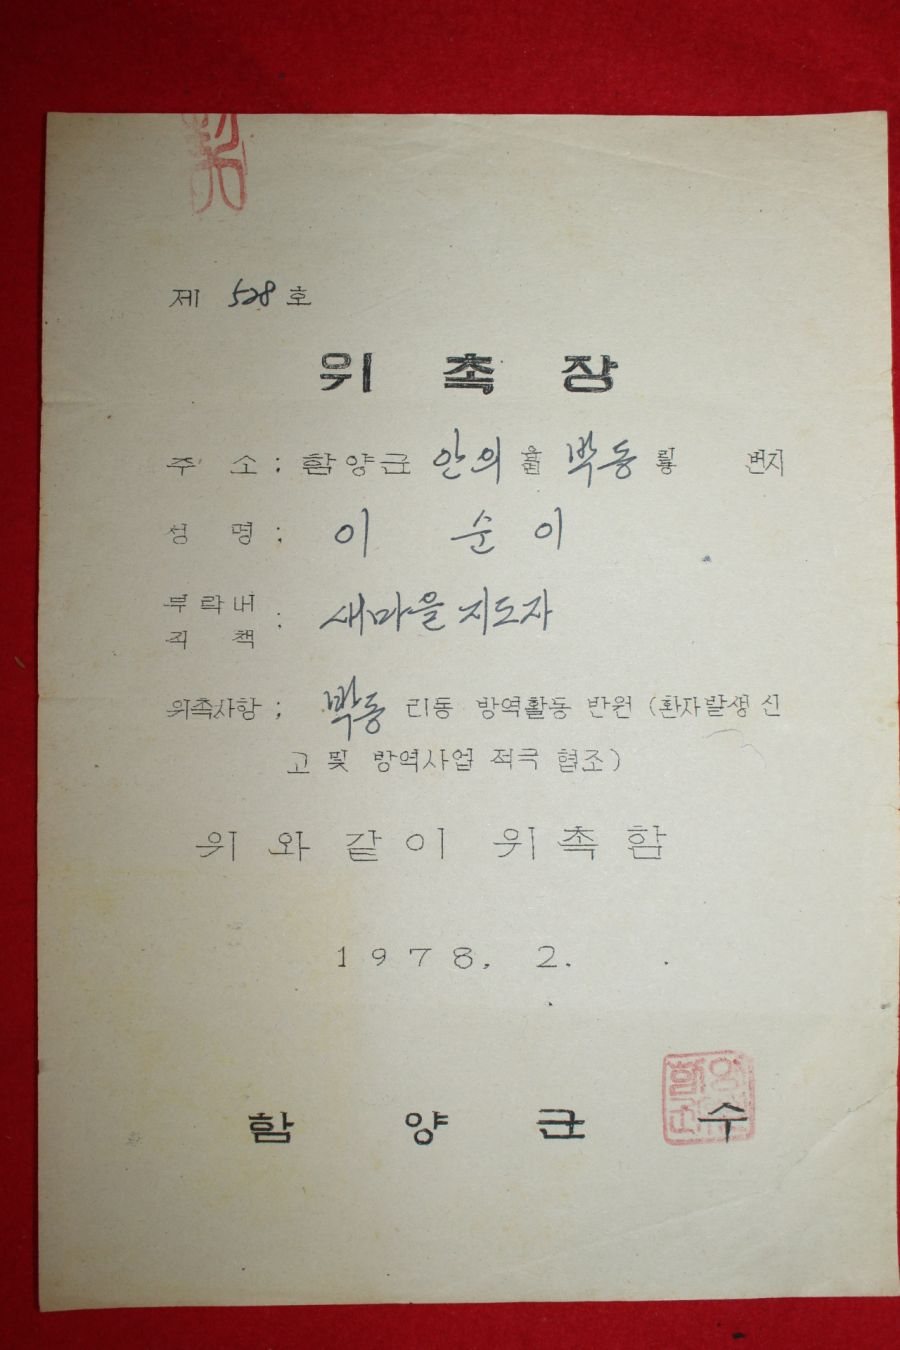 제 528 호
위 촉 장
주 소 : 함양군 안의 읍면 박동 리동 번지
성 명 : 이 순 이
부락내
직 책 : 새마을 지도자
위촉사항 ; 박동 리동 방역활동 반원 (환자발생 신
고 및 방역사업 적극 협조)
위 와 같이 위촉함
1978. 2. .
함 양 군 수